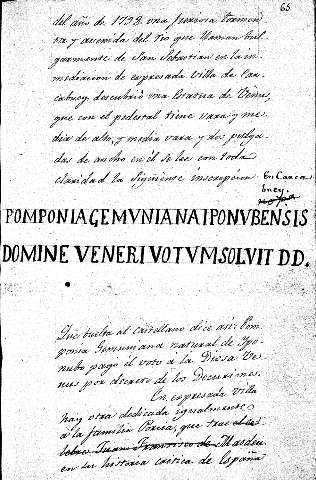 65
del año de 1798 una furiosa tormen
ta y avenida del rio que llaman bul
garmente de San Sebastian en la in
mediacion de expresada villa de Car
cabuey descubrió una Estatua de Venus,
que con el pedestal tiene vara y me
dia de alto, y media vara y dos pulga
das de ancho en el se lee con toda
claridad la siguiente inscripcion
En Carca
buey.
POMPONIA GEMUNIANA IPONUBENSIS
DOMINE VENERI VOTUM SOLVIT D.D.
Que vuelta al castellano dice asi: Pom
ponia Gemuniana natural de Ipo
nubo pagó el voto á la Diosa Ve
nus por decreto de los Decuriones.
En expresada villa
hay otra dedicada igualmente
á la familia Porcia, que trae el ce
lebre Juan Francisco de Masdeu
en su historia critica de España